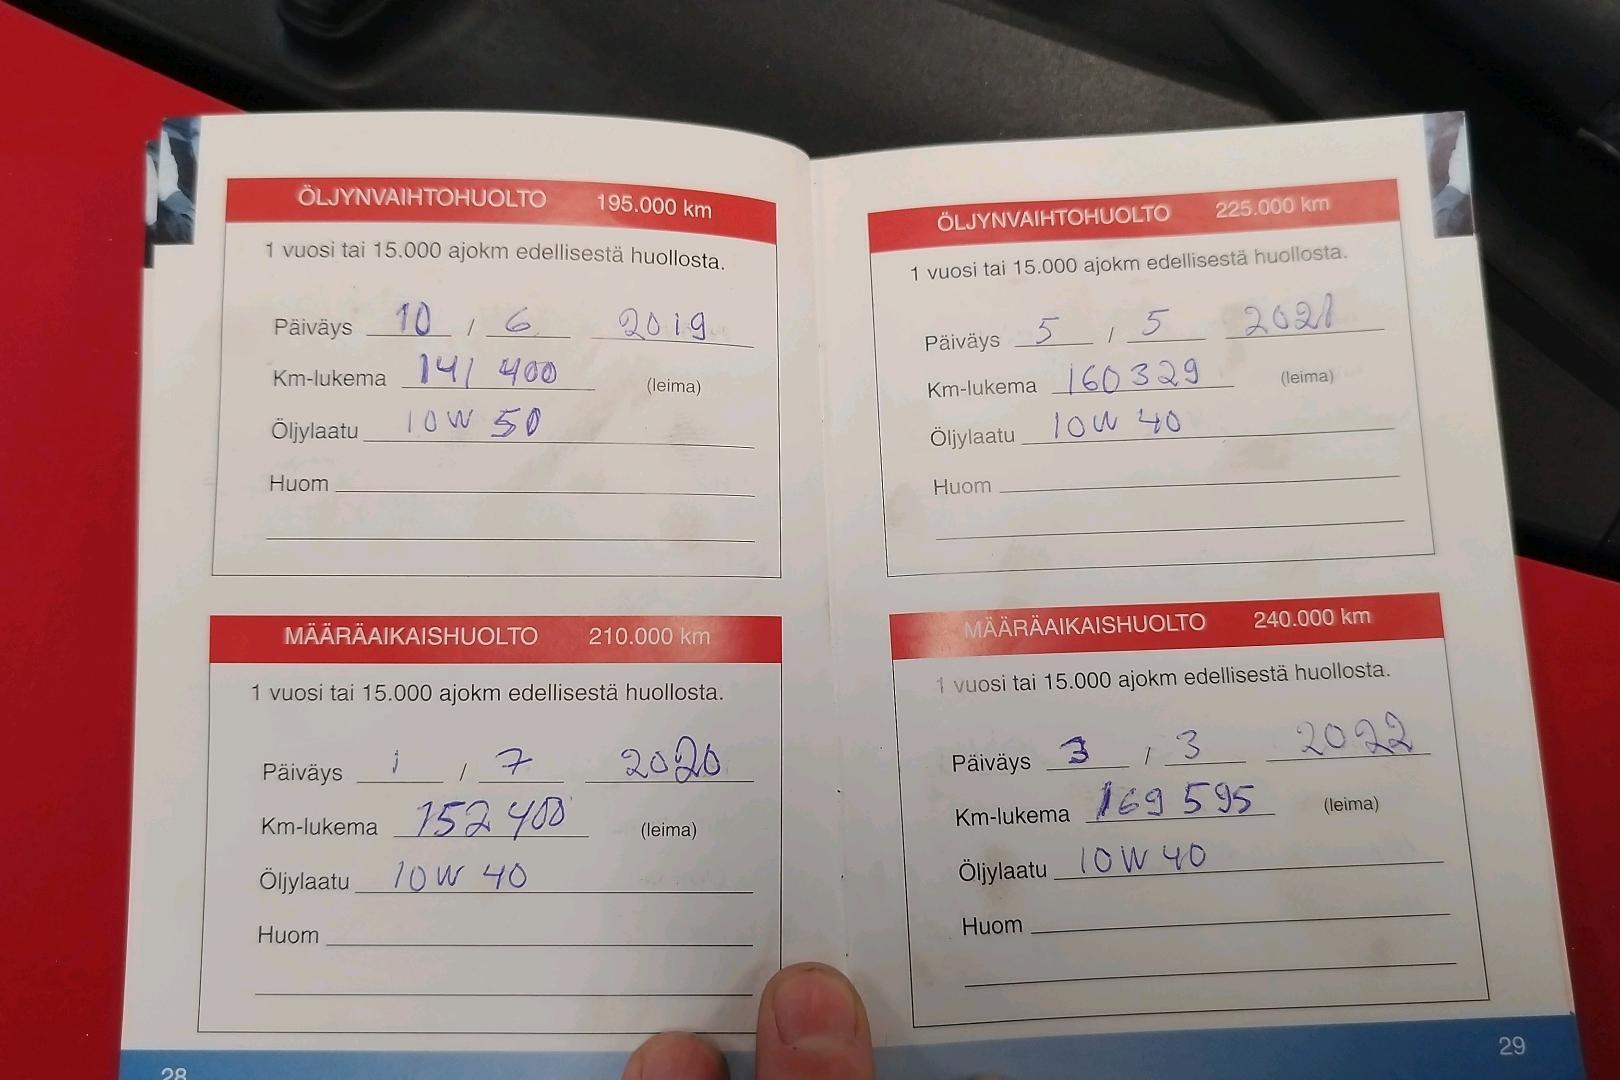 ÖLJYNVAIHTOHUOLTO 195.000 km
1 vuosi tai 15.000 ajokm edellisestä huollosta.
Päiväys 10 / 6 2019
Km-lukema 141 400 (leima)
Öljylaatu 10W 50
Huom
MÄÄRÄAIKAISHUOLTO 210.000 km
1 vuosi tai 15.000 ajokm edellisestä huollosta.
Päiväys 1 / 7 2020
Km-lukema 152 400 (leima)
Öljylaatu 10W 40
Huom
28
ÖLJYNVAIHTOHUOLTO 225.000 km
1 vuosi tai 15.000 ajokm edellisestä huollosta.
Päiväys 5 / 5 2021
Km-lukema 160329 (leima)
Öljylaatu 10W 40
Huom
MÄÄRÄAIKAISHUOLTO 240.000 km
1 vuosi tai 15.000 ajokm edellisestä huollosta.
Päiväys 3 / 3 2022
Km-lukema 169 595 (leima)
Öljylaatu 10W 40
Huom
29